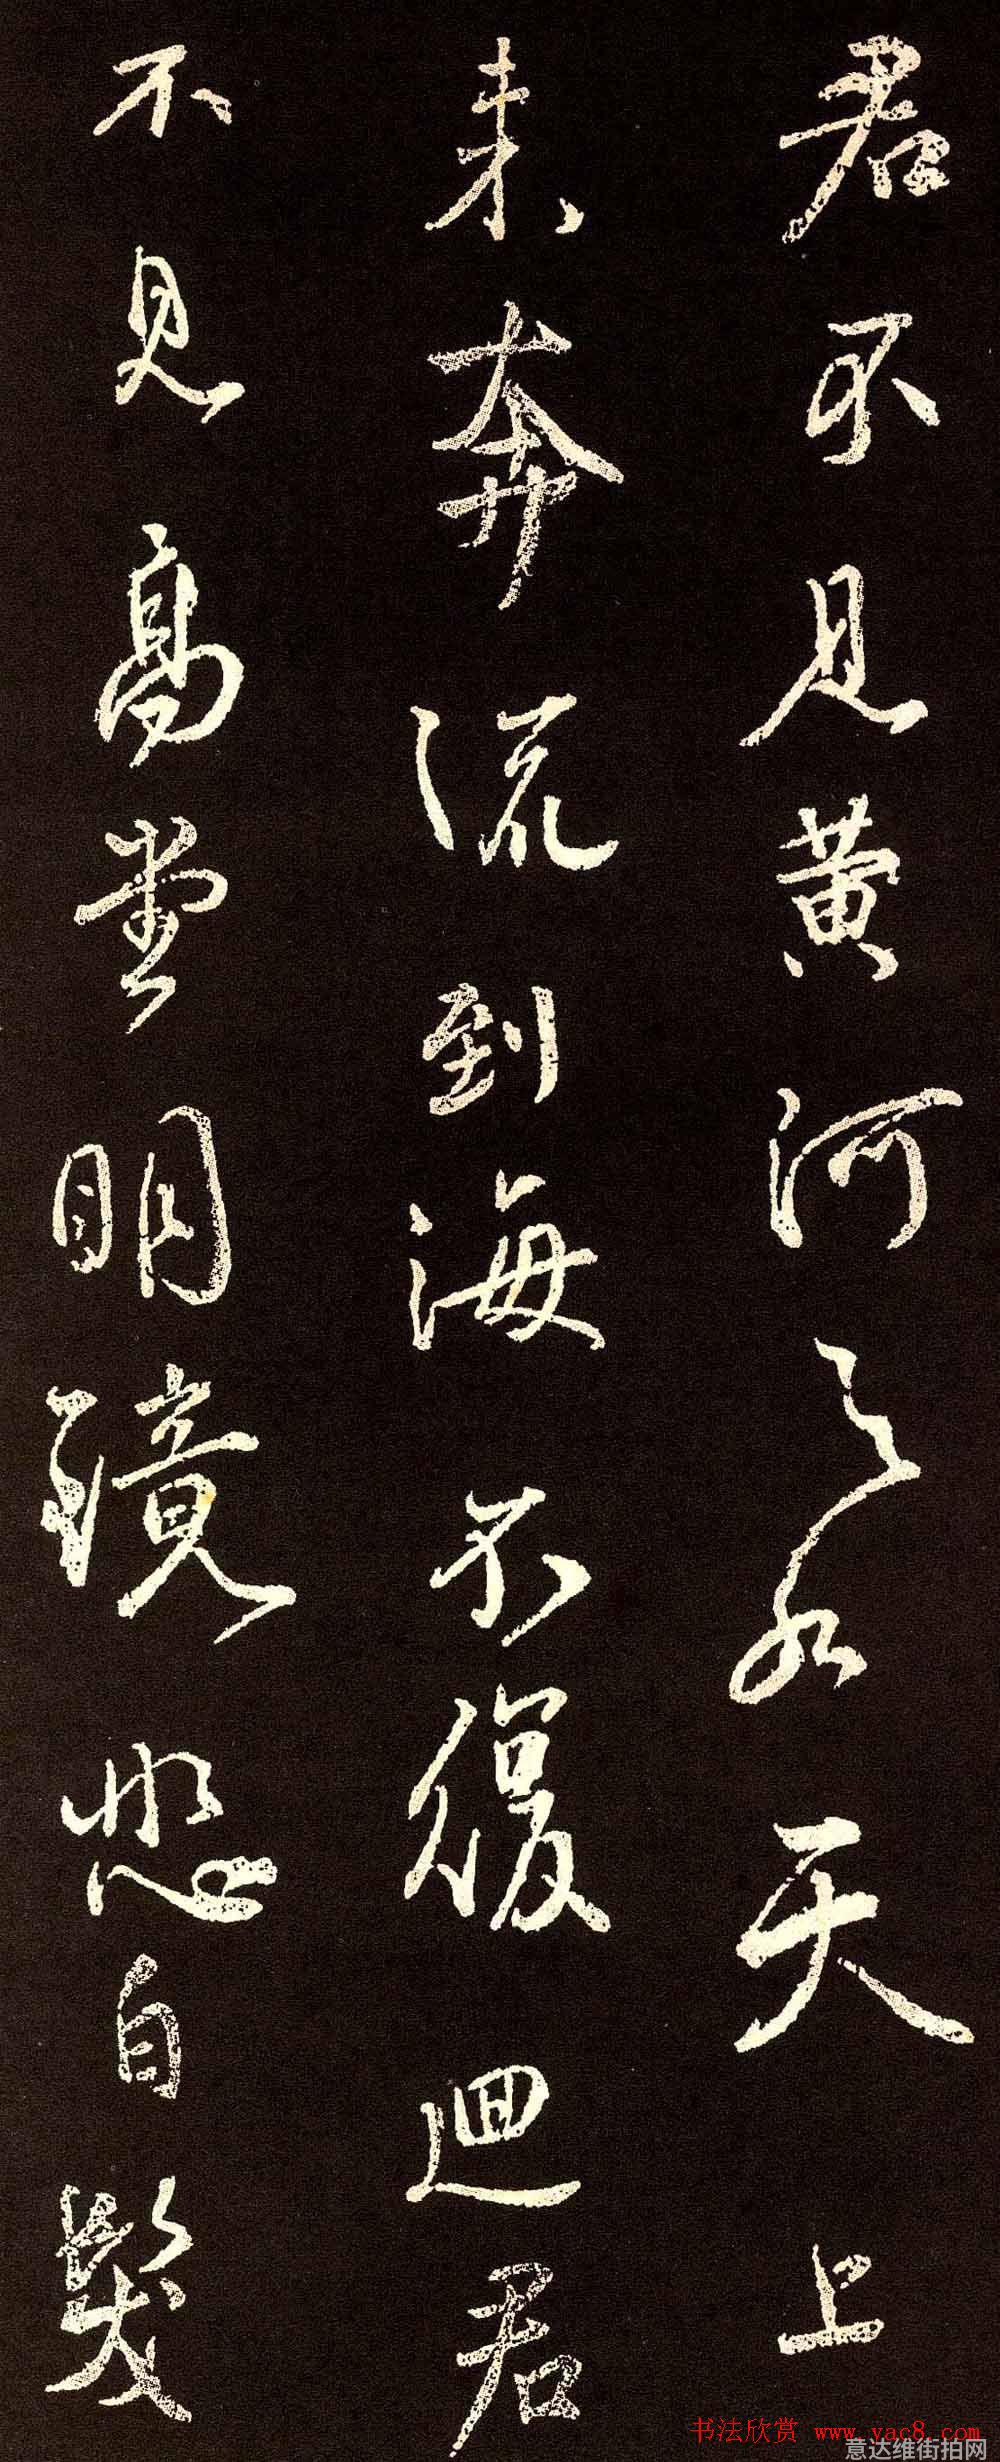 君不見黄河之水天上
来奔流到海不復迴君
不見高堂明鏡悲白髮
书法欣赏 www.yac8.com
意达维街拍网